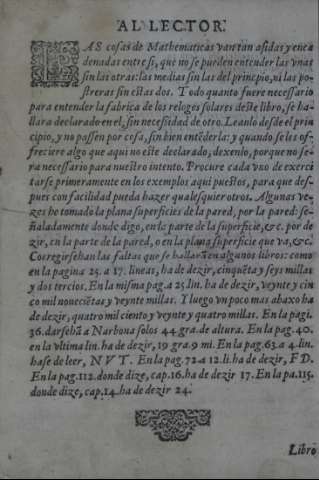 AL LECTOR.
LAS cosas de Mathematicas van tan asidas y enca
denadas entre si, que no se pueden entender las vnas
sin las otras: las medias sin las del principio, ni las po-
streras sin estas dos. Todo quanto fuere necessario
para entender la fabrica de los reloges solares deste libro, se ha-
llara declarado en el, sin necesidad de otro. Leanlo desde el prin
cipio, y no passen por cosa, sin bien entēderla: y quando se les of-
freciere algo que aqui no este declarado, dexenlo, porque no se-
ra necessario para nuestro intento. Procure cada vno de exerci
tarse primeramente en los exemplos aqui puestos, para que des-
pues con facilidad pueda hazer qualesquier otros. Algunas ve-
zes he tomado la plana superficies de la pared, por la pared: se-
ñaladamente donde digo, en la parte de la superficie, &c. por de
zir, en la parte de la pared, o en la plana superficie que va, &c.
Corregirsehan las faltas que se hallaren algunos libros: como
en la pagina 25. a 17. lineas, ha de dezir, cinquēta y seys millas
y dos tercios. En la misma pag. a 25 lin. ha de dezir, veynte y cin
co mil nouecientas y veynte millas. Y luego vn poco mas abaxo ha
de dezir, quatro mil ciento y veynte y quatro millas. En la pagi.
36. darsehā a Narbona solos 44. gra. de altura. En la pag. 40.
en la vltima lin. ha de dezir, 19 gra. 9 mi. En la pag. 63. a 4. lin.
hase de leer, NVT. En la pag. 72. a 12. li. ha de dezir, FD.
En la pag. 112. donde dize, cap. 16. ha de dezir 17. En la pa. 115.
donde dize, cap. 14. ha de dezir 24.
Libro